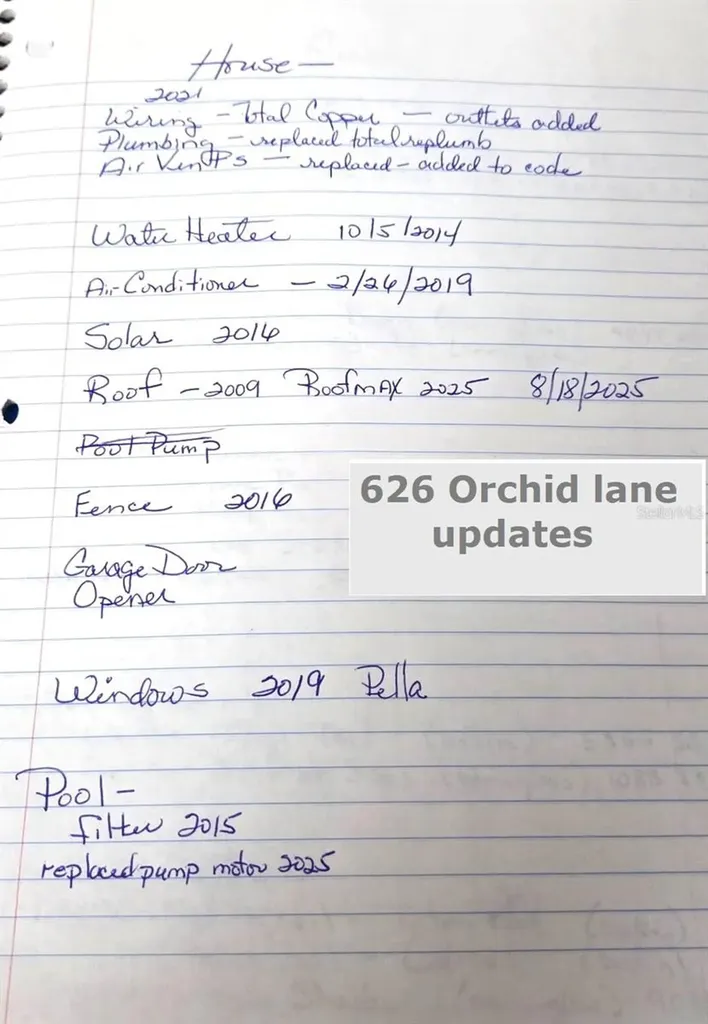 House —
2021
Wiring - Total Copper — outlets added
Plumbing - replaced total replumb
Air Vents — replaced - added to code
Water Heater 10/5/2014
Air-Conditioner — 2/26/2019
Solar 2016
Roof - 2009 RoofmAX 2025 8/18/2025
Pool Pump
Fence 2016
626 Orchid lane
updates
Garage Door
Opener
Windows 2019 Pella
Pool -
filter 2015
replaced pump motor 2025